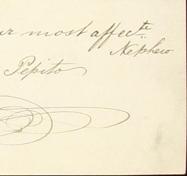 ur most affecte
Nephew
Pepito